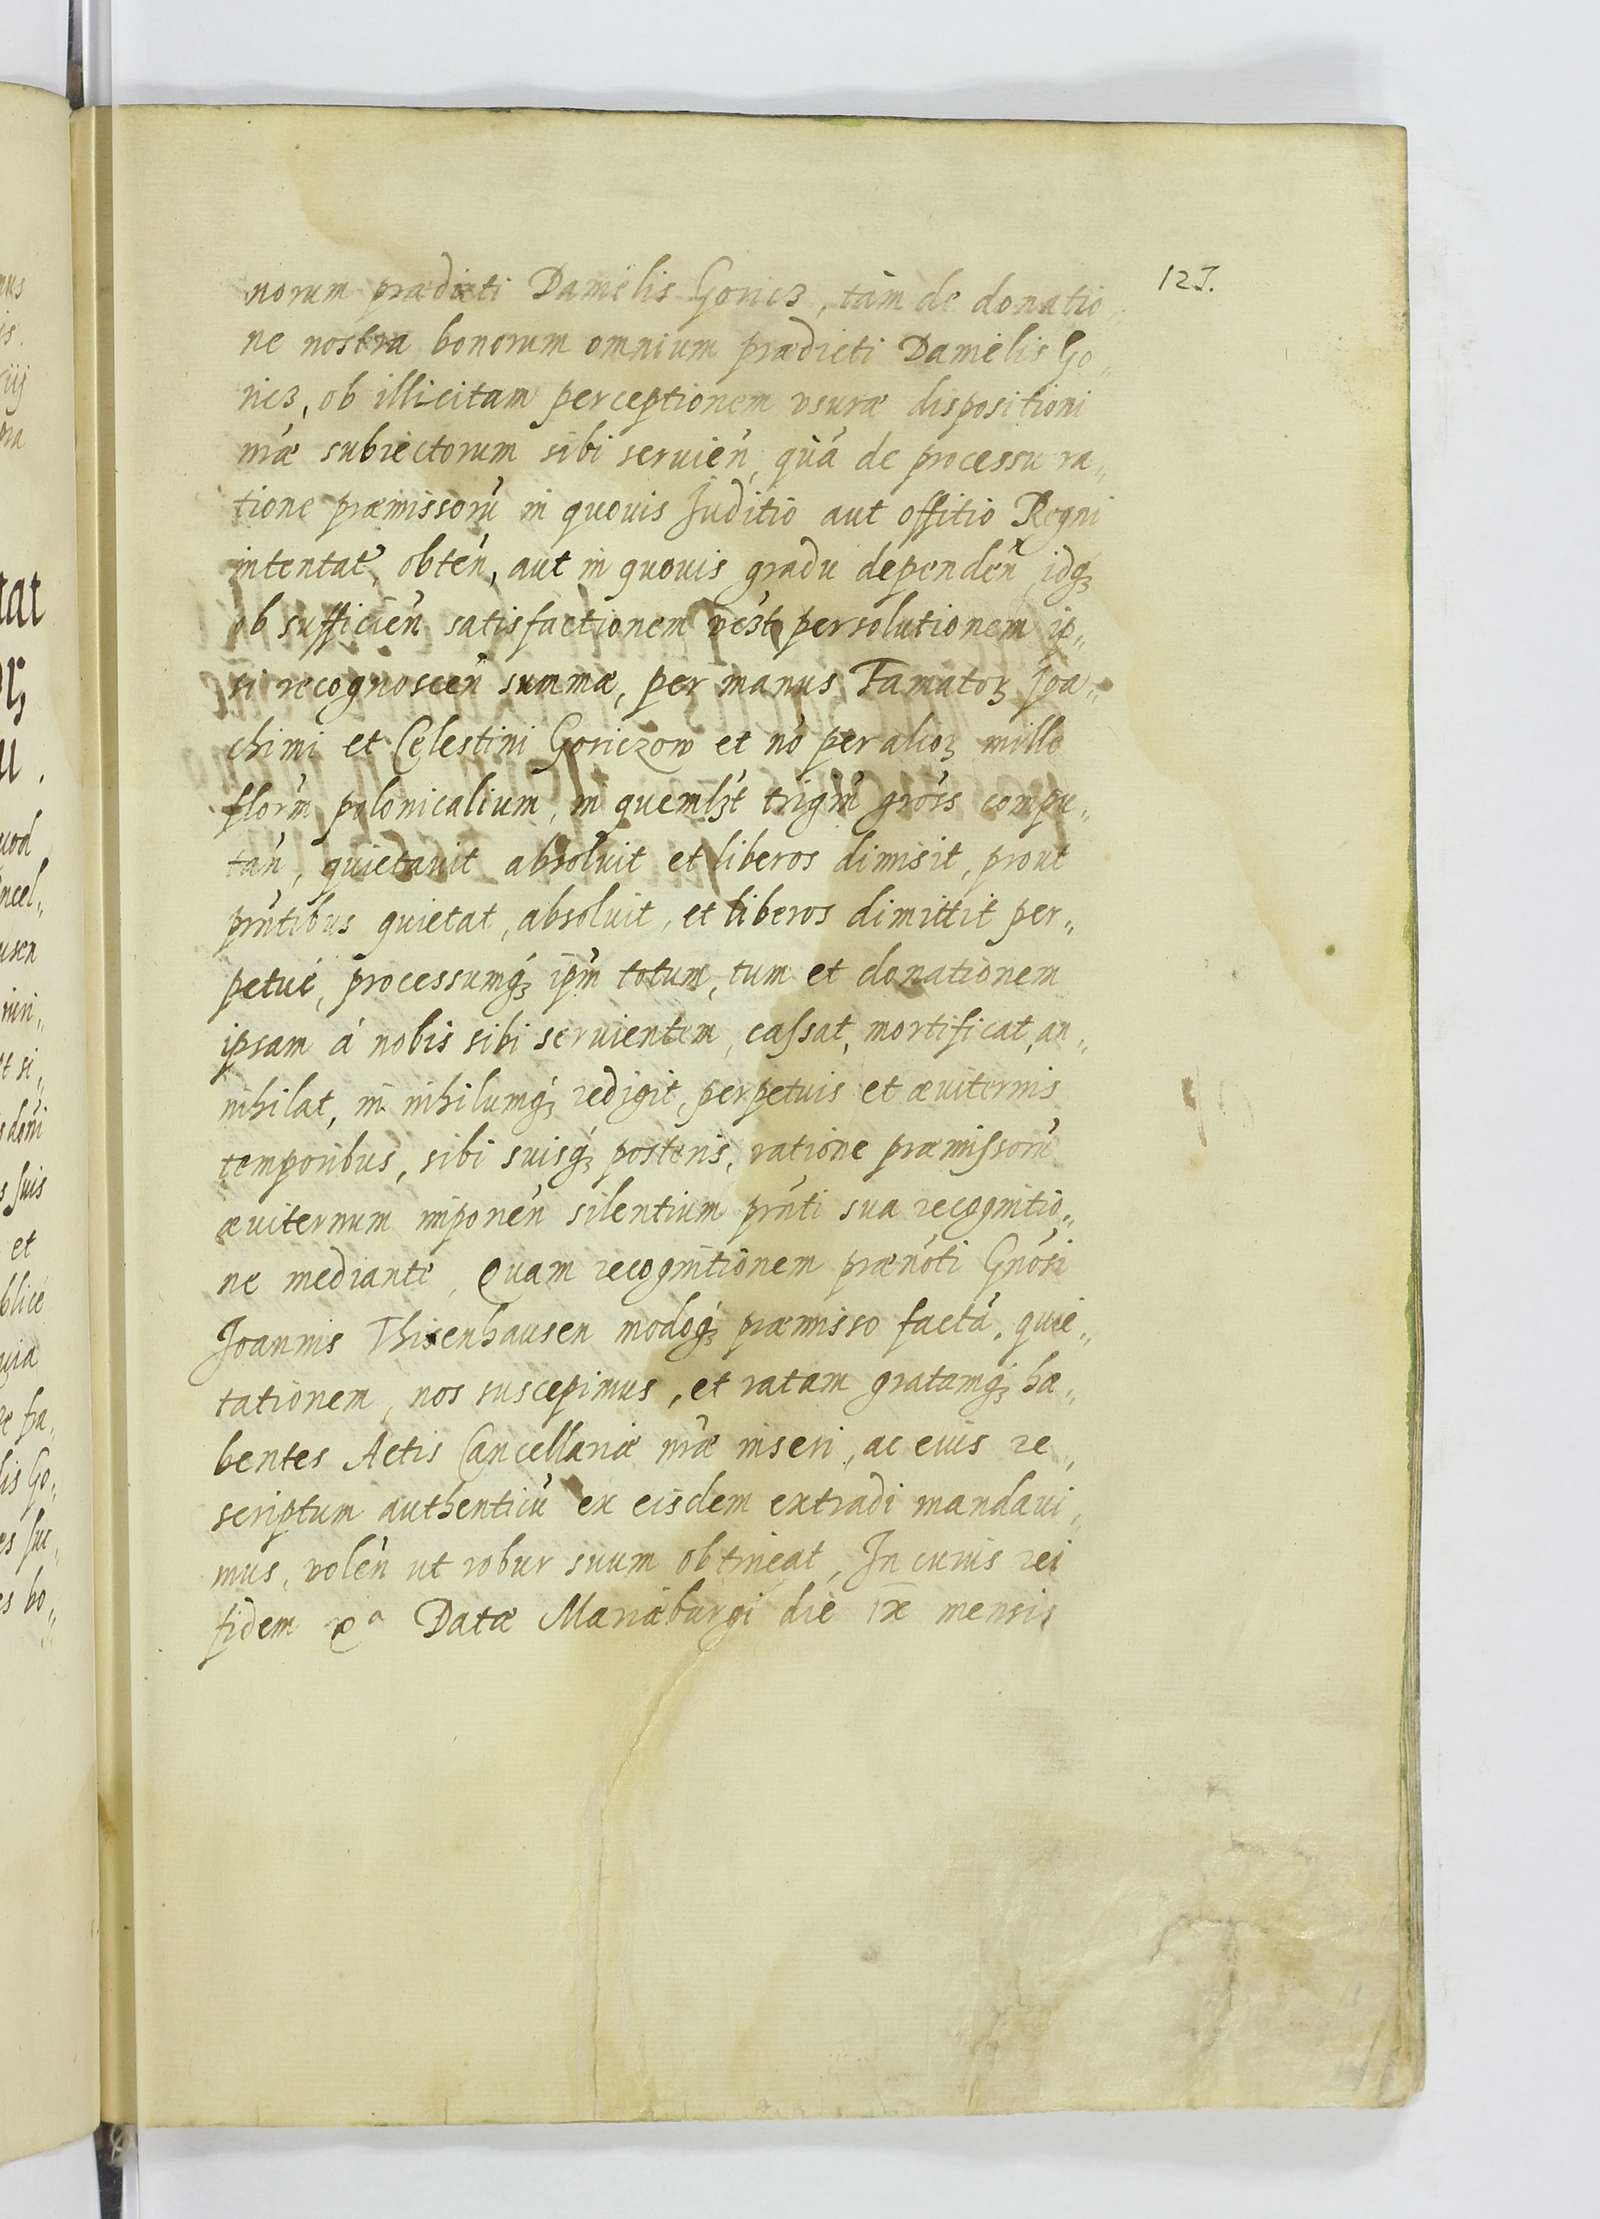 123.
norum prædicti Danielis Goricz, tàm de donatio„
ne nostra bonorum omnium prædicti Danielis Go„
ricz, ob illicitam perceptionem vsuræ dispositioni
nr̃æ subiectorum sibi seruień, quá de processu ra„
tione præmissorũ in quouis Juditio aut offitio Regni
intentat̉, obteń, aut in quouis gradu dependeń, idq₃
ob sufficień satisfactionem persolutionem ip„
si recognosceń summæ, per manus Famatoꝝ Joa„
chimi et Celestini Goriczow et nõ per alioꝝ mille
florm̃ polonicalium, in quemlꝫt trigm̃ grors̃ compu„
tań, quietauit absoluit et liberos dimisit, prout
prñtibus quietat, absoluit, et liberos dimittit per„
petuè, processumq₃ ipm̃ totum, tum et donationem
ipsam á nobis sibi seruientem, cassat, mortificat, an„
nihilat, in nihilumq₃ redigit, perpetuis et æviternis
temporibus, sibi suisq₃ posteris, ratione præmissorũ
æviternum imponeń silentium prñti sua recognitio„
ne mediante, Quam recognitionem prænoti Gnosi
Joannis Thisenhausen modoq₃ præmisso factã, quie„
tationem, nos suscepimus, et ratam gratamq₃ ha„
bentes Actis Cancellariæ nr̃æ inseri, ac eius re„
scriptum authenticũ ex eisdem extradi mandaui„
mus, voleń ut robur suum obtineat, In cuius rei
fidem Datæ Mariæburgi die IX mensis